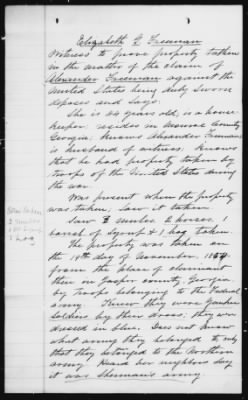 Elizabeth F. Freeman
Witness to prove property taken
in the matter of the claim of
Alexander Freeman against the
United States being duly sworn
deposes and says:
She is 44 years old, is a house
keeper resides in Monroe County
Georgia. Knows Alexander Freeman
is husband of witness. Knows
that he had property taken by
troops of the United States during
the war.
Was present when the property
was taken. Saw it taken
Saw 2 mules 2 horses 1
barrel of syrup & 1 hog taken.
The property was taken on
the 19th day of November 1864
from the place of claimant
then in Jasper county Georgia
by troops belonging to the Federal
army. Knew they were Yankee
Soldiers by their dress: they wer
dressed in blue. Does not know
what army they belonged to only
that they belonged to the Northern
army. Heard her neighbors say
it was Sherman's army.
2 mules
1 hog